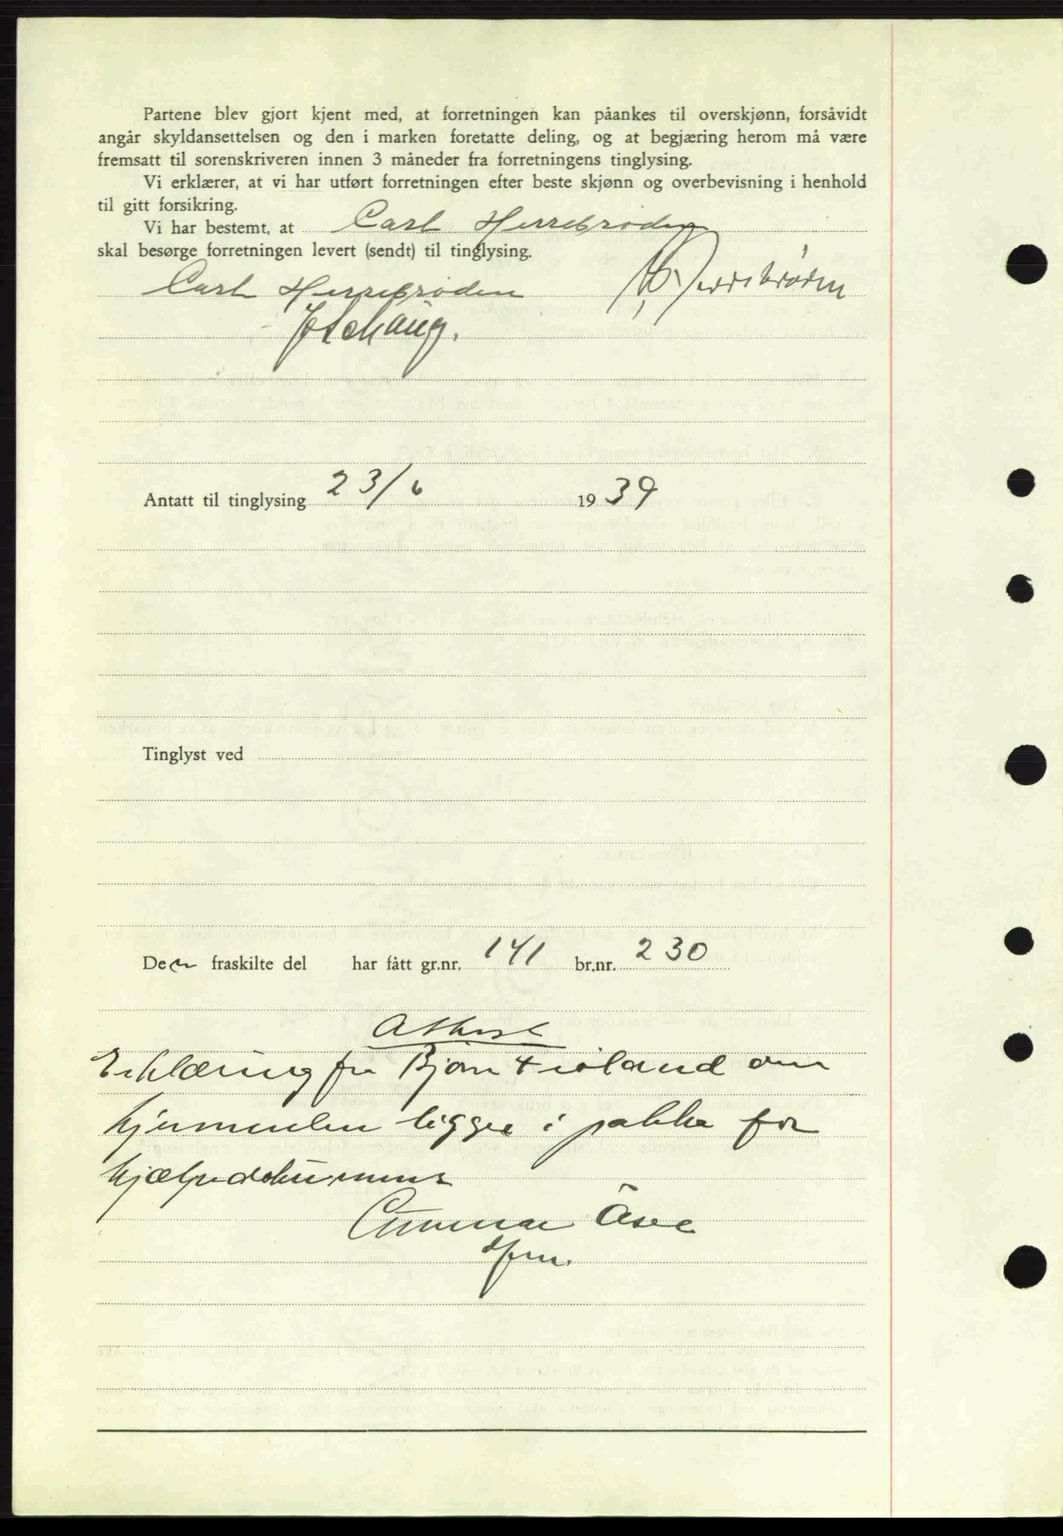 Partene blev gjort kjent med, at forretningen kan påankes til overskjønn, forsåvidt
angår skyldansettelsen og den i marken foretatte deling, og at begjæring herom må være
fremsatt til sorenskriveren innen 3 måneder fra forretningens tinglysing.
Vi erklærer, at vi har utført forretningen efter beste skjønn og overbevisning i henhold
til gitt forsikring.
Vi har bestemt, at Carl Herrebrøden
skal besørge forretningen levert (sendt) til tinglysing.
Carl Herrebrøden Herrebrøden
Antatt til tinglysing 23/6 1939
Tinglyst ved
Den fraskilte del har fått gr.nr. 141 br.nr. 230
Attest
Erklæring fra Bjørn om
ligger i pakke for
Gunnar Åsee